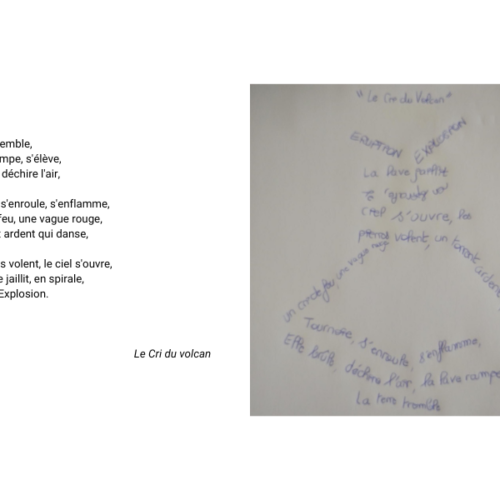 emble,
mpe, s'élève,
déchire l'air,
s'enroule, s'enflamme,
feu, une vague rouge,
t ardent qui danse,
s volent, le ciel s'ouvre,
e jaillit, en spirale,
Explosion.
Le Cri du volcan
"Le Cri du Volcan"
ERUPTION EXPLOSION
La lave jaillit
ciel s'ouvre, les
pierres volent, un torrent ardent
un cercle feu, une vague rouge
Tournoie, s'enroule, s'enflamme,
Elle brûle, déchire l'air, la lave rampe
La terre tremble